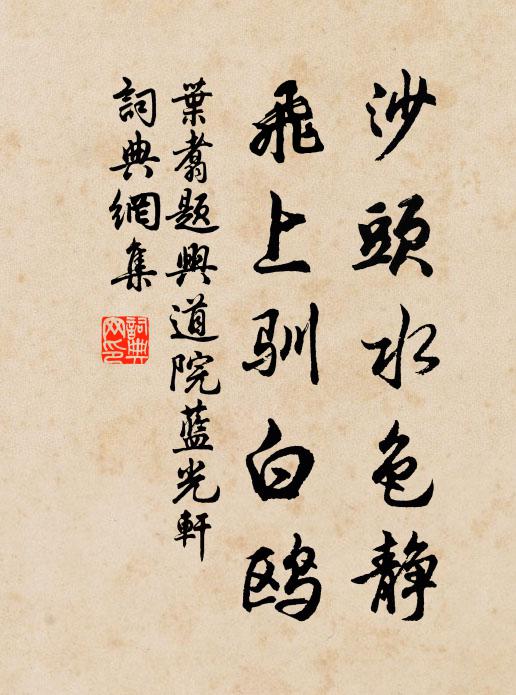 沙頭水色静
飛上馴白鸥
葉翥题興道院蓝光軒
詞典網集
詞典网印